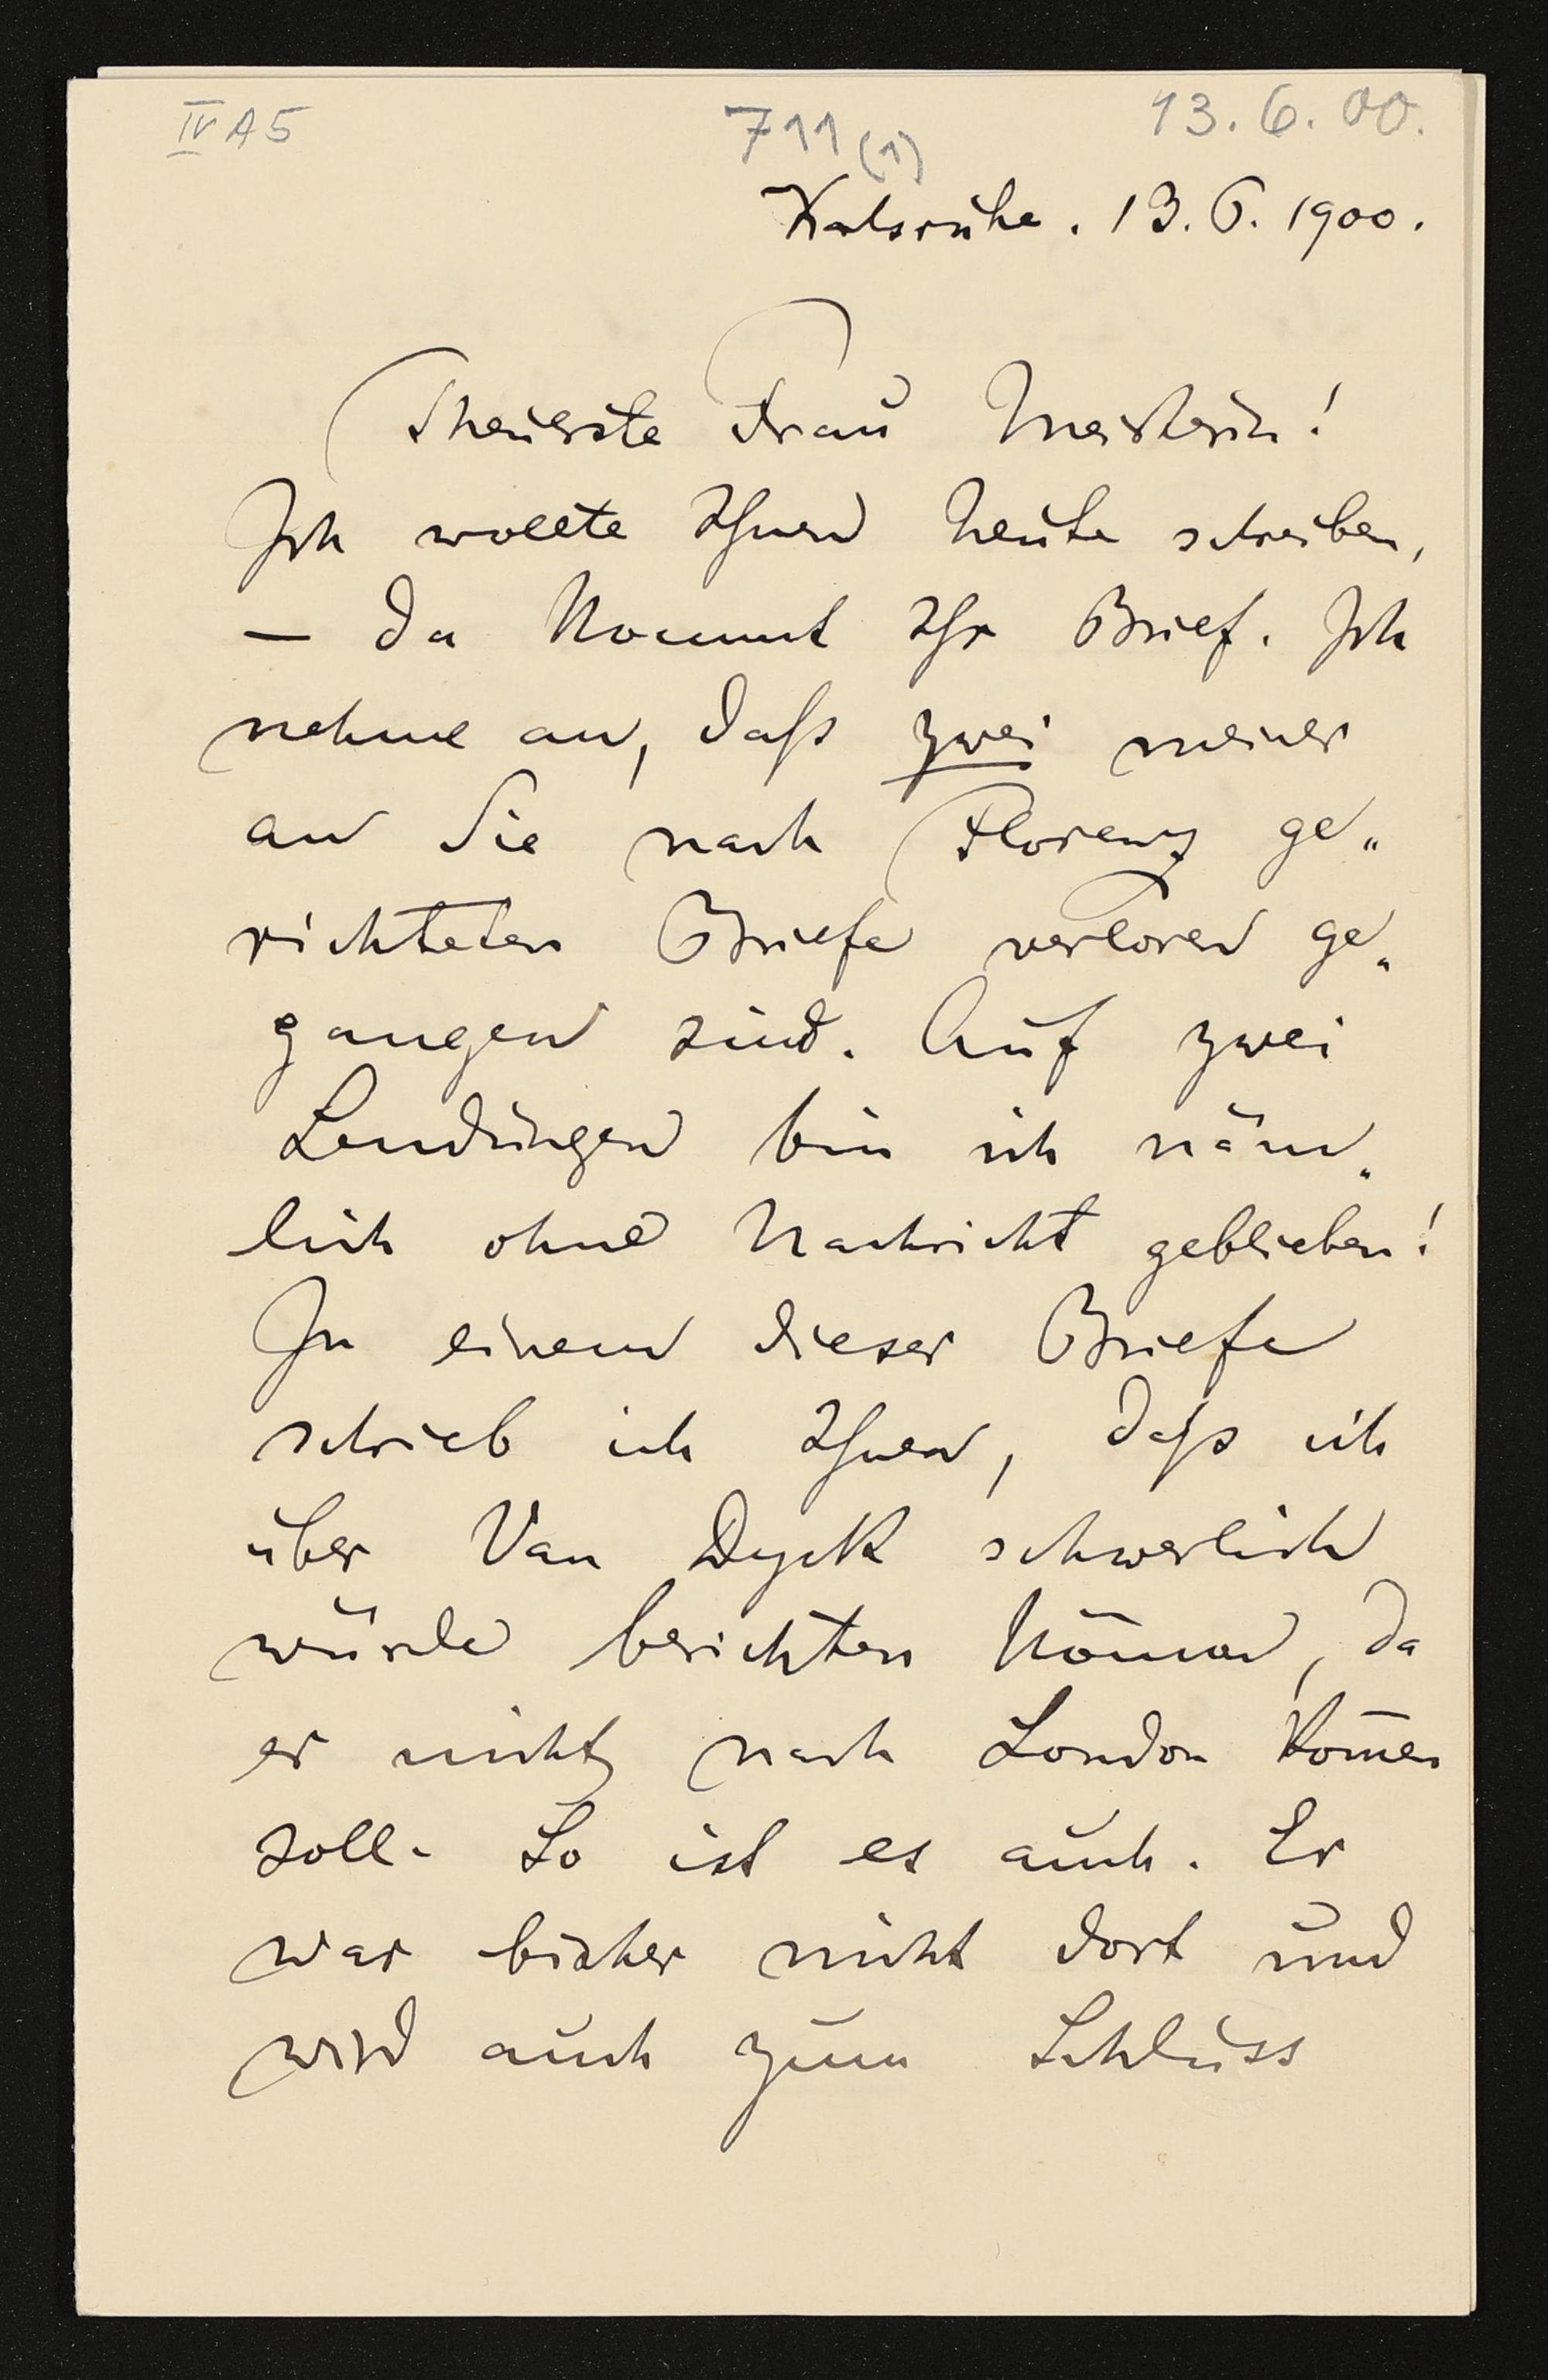 IV A5
711 (1)
13. 6. 00.
Karlsruhe. 13. 6. 1900.
Theuerste Frau Meisterin!
Ich wollte Ihnen heute schreiben,
— da kommt Ihr Brief. Ich
nehme an, daß zwei meiner
an Sie nach Florenz ge„
richteten Briefe verloren ge„
gangen sind. Auf zwei
Sendungen bin ich näm„
lich ohne Nachricht geblieben!
In einem dieser Briefe
schrieb ich Ihnen, daß ich
über Van Dyck schwerlich
würde berichten können, da
er nicht nach London kom̄en
soll. So ist es auch. Er
war bisher nicht dort und
wird auch zum Schluss